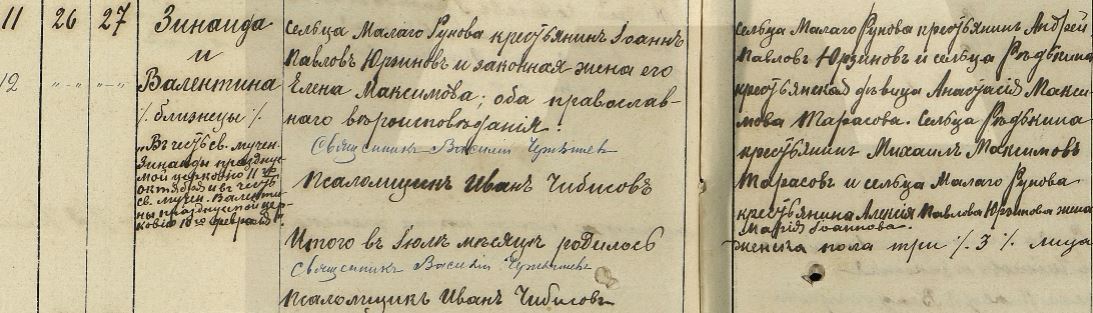 11 26 27 Зинаида
и
12 -"- -"- Валентина
% близнецы %
"Въ честь св. мучен.
Зинаиды празднуе-
мой церковію 11го
октября и въ честь
св. мучен. Валенти-
ны празднуемой цер-
ковію 10го февраля".
Сельца Малаго Рунова крестьянинъ Іоаннъ
Павловъ Юрзиновъ и законная жена его
Елена Максимова; оба православ-
наго вѣроисповѣданія.
Священникъ Василій
Псаломщикъ Иванъ Чибисовъ
Итого въ Іюлѣ мѣсяцѣ родилось
Священникъ Василій
Псаломщикъ Иванъ Чибисовъ
Сельца Малаго Рунова крестьянинъ Андрей
Павловъ Юрзиновъ и сельца
крестьянская дѣвица Анастасія Макси-
мова Тарасова. Сельца
крестьянинъ Михаилъ Максимовъ
Тарасовъ и сельца Малаго Рунова
крестьянина Алексія Павлова Юрзинова жена
Марія Іоаннова.
женска пола три % 3 % лица